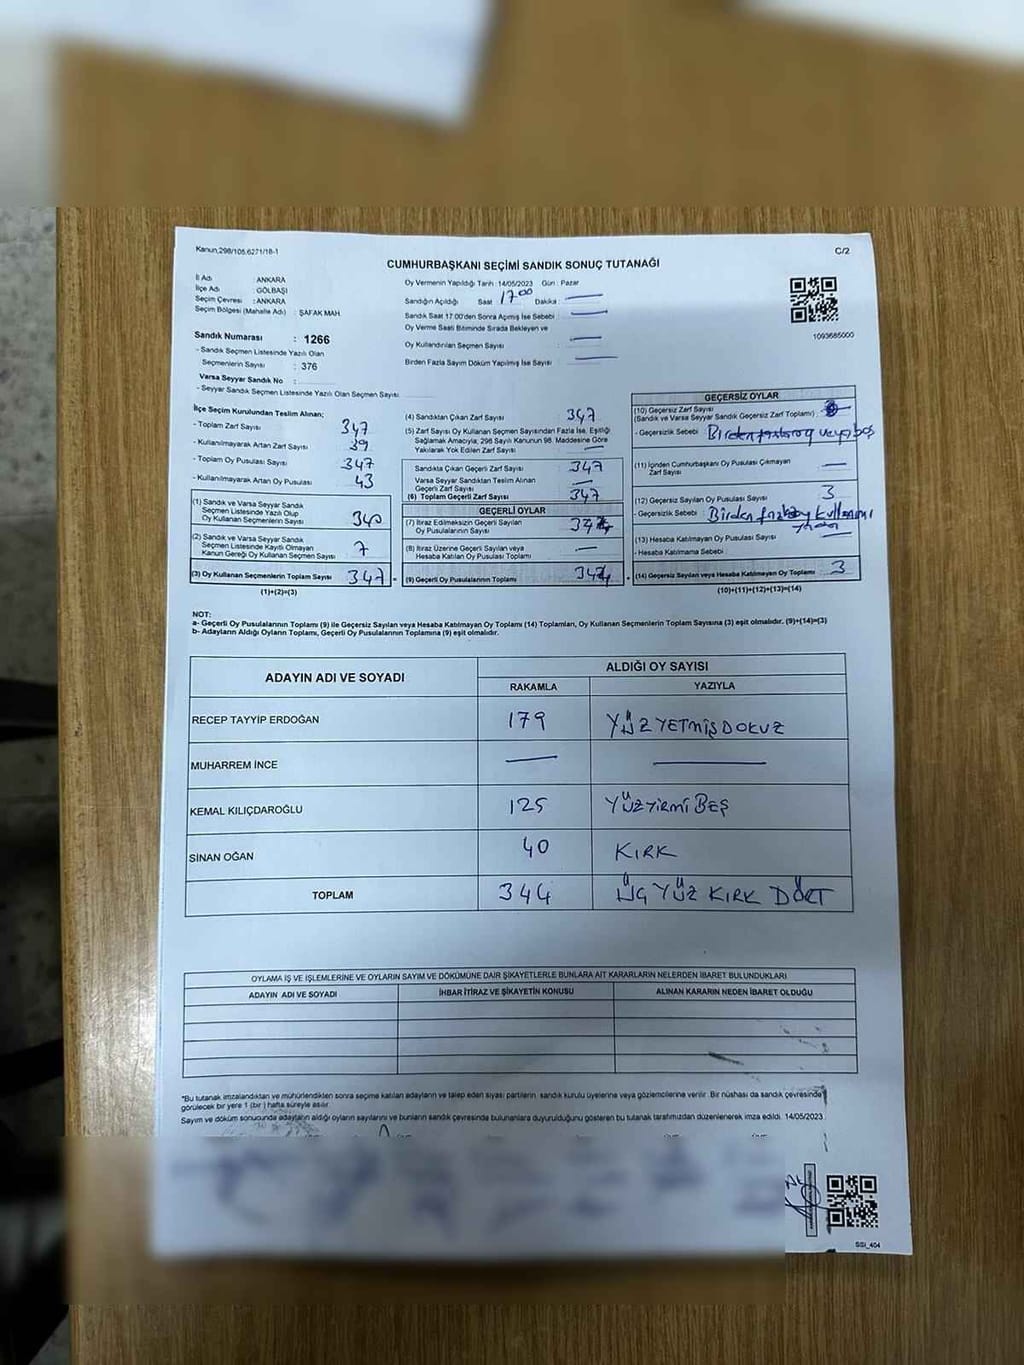 Kanun,298/105,6271/18-1
C/2
CUMHURBAŞKANI SEÇİMİ SANDIK SONUÇ TUTANAĞI
İl Adı : ANKARA
İlçe Adı : GÖLBAŞI
Seçim Çevresi : ANKARA
Seçim Bölgesi (Mahalle Adı) : ŞAFAK MAH.
Sandık Numarası : 1266
- Sandık Seçmen Listesinde Yazılı Olan
Seçmenlerin Sayısı : 376
Varsa Seyyar Sandık No :
- Seyyar Sandık Seçmen Listesinde Yazılı Olan Seçmen Sayısı
Oy Vermenin Yapıldığı Tarih :14/05/2023 Gün : Pazar
Sandığın Açıldığı Saat 17 00 Dakika :
Sandık Saat 17.00'den Sonra Açmış İse Sebebi :
Oy Verme Saati Bitiminde Sırada Bekleyen ve
Oy Kullandırılan Seçmen Sayısı :
Birden Fazla Sayım Döküm Yapılmış İse Sayısı :
1093685000
İlçe Seçim Kurulundan Teslim Alınan;
- Toplam Zarf Sayısı 347
- Kullanılmayarak Artan Zarf Sayısı 39
- Toplam Oy Pusulası Sayısı 347
- Kullanılmayarak Artan Oy Pusulası 43
(1) Sandık ve Varsa Seyyar Sandık
Seçmen Listesinde Yazılı Olup
Oy Kullanan Seçmenlerin Sayısı 340
(2) Sandık ve Varsa Seyyar Sandık
Seçmen Listesinde Kayıtlı Olmayan
Kanun Gereği Oy Kullanan Seçmen Sayısı 7
(3) Oy Kullanan Seçmenlerin Toplam Sayısı 347
(1)+(2)=(3)
(4) Sandıktan Çıkan Zarf Sayısı 347
(5) Zarf Sayısı Oy Kullanan Seçmen Sayısından Fazla İse, Eşitliği
Sağlamak Amacıyla; 298 Sayılı Kanunun 98. Maddesine Göre
Yakılarak Yok Edilen Zarf Sayısı
Sandıkta Çıkan Geçerli Zarf Sayısı 347
Varsa Seyyar Sandıktan Teslim Alınan
Geçerli Zarf Sayısı
(6) Toplam Geçerli Zarf Sayısı 347
GEÇERLİ OYLAR
(7) İtiraz Edilmeksizin Geçerli Sayılan
Oy Pusulası Sayısı 344
(8) İtiraz Üzerine Geçerli Sayılan veya
Hesaba Katılan Oy Pusulası Toplamı
(9) Geçerli Oy Pusulalarının Toplamı 344
GEÇERSİZ OYLAR
(10) Geçersiz Zarf Sayısı
(Sandık ve Varsa Seyyar Sandık Geçersiz Zarf Toplamı) :
- Geçersizlik Sebebi : Birden fazla oy veya boş
(11) İçinden Cumhurbaşkanı Oy Pusulası Çıkmayan
Zarf Sayısı
(12) Geçersiz Sayılan Oy Pusulası Sayısı 3
- Geçersizlik Sebebi : Birden fazla oy kullanımı
(13) Hesaba Katılmayan Oy Pusulası Sayısı
- Hesaba Katılmama Sebebi :
(14) Geçersiz Sayılan veya Hesaba Katılmayan Oy Toplamı 3
(10)+(11)+(12)+(13)=(14)
NOT:
a- Geçerli Oy Pusulalarının Toplamı (9) ile Geçersiz Sayılan veya Hesaba Katılmayan Oy Toplamı (14) Toplamları, Oy Kullanan Seçmenlerin Toplam Sayısına (3) eşit olmalıdır. (9)+(14)=(3)
b- Adayların Aldığı Oyların Toplamı, Geçerli Oy Pusulalarının Toplamına (9) eşit olmalıdır.
ADAYIN ADI VE SOYADI ALDIĞI OY SAYISI
RAKAMLA YAZIYLA
RECEP TAYYİP ERDOĞAN 179 YÜZ YETMİŞ DOKUZ
MUHARREM İNCE
KEMAL KILIÇDAROĞLU 125 YÜZ YİRMİ BEŞ
SİNAN OĞAN 40 KIRK
TOPLAM 344 ÜÇ YÜZ KIRK DÖRT
OYLAMA İŞ VE İŞLEMLERİNE VE OYLARIN SAYIM VE DÖKÜMÜNE DAİR ŞİKAYETLERLE BUNLARA AİT KARARLARIN NELERDEN İBARET BULUNDUKLARI
ADAYIN ADI VE SOYADI İHBAR İTİRAZ VE ŞİKAYETİN KONUSU ALINAN KARARIN NEDEN İBARET OLDUĞU
*Bu tutanak imzalandıktan ve mühürlendikten sonra seçime katılan adayların ve talep eden siyasi partilerin sandık kurulu üyelerine veya gözlemcilerine verilir. Bir nüshası da sandık çevresinde
görülecek bir yere 1 (bir) hafta süreyle asılır.
Sayım ve döküm sonucunda adayların aldığı oyların sayılarını ve bunların sandık çevresinde bulunanlara duyurulduğunu gösteren bu tutanak tarafımızdan düzenlenerek imza edildi. 14/05/2023
SSI_404